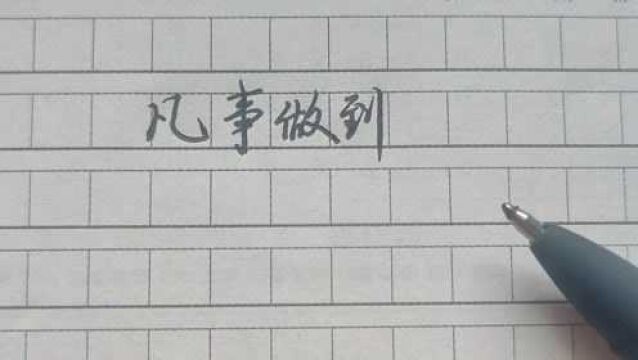 凡事做到